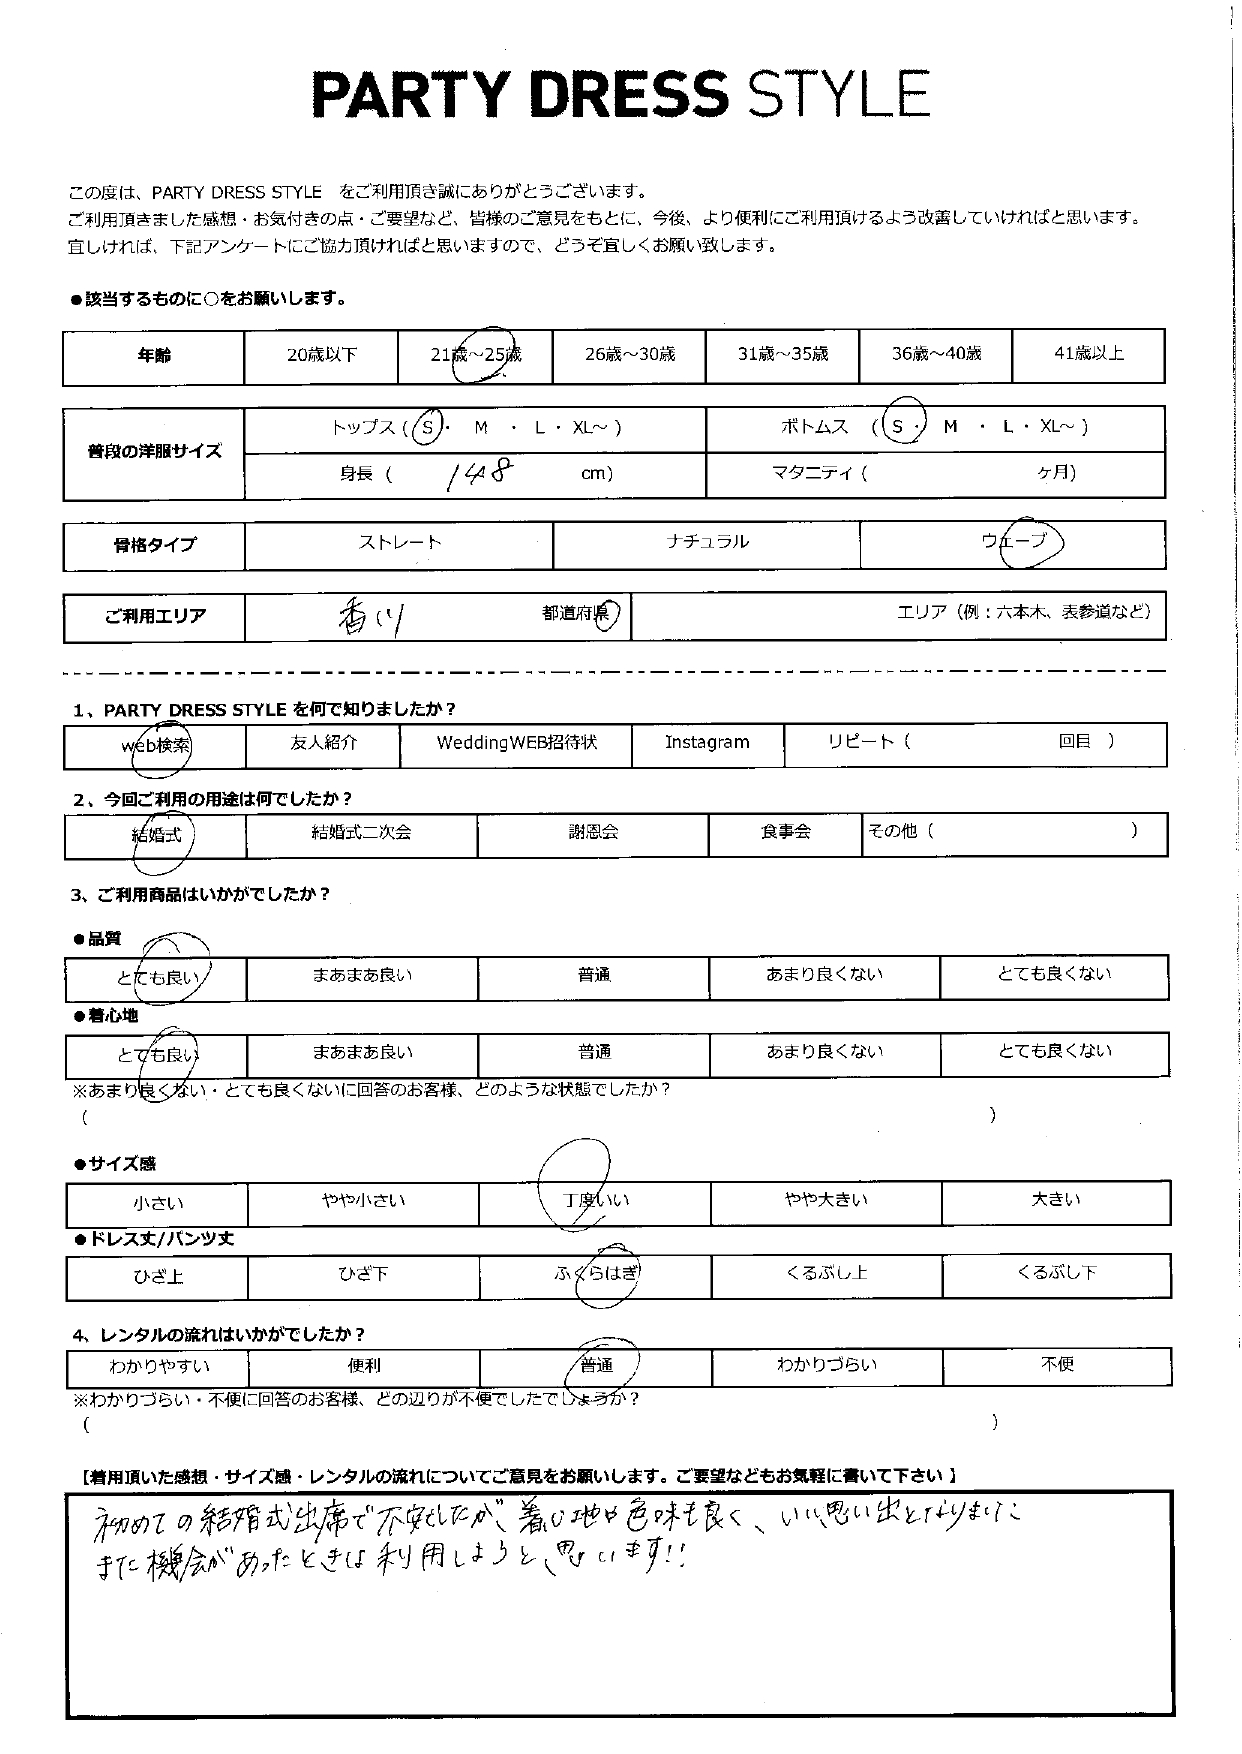 PARTY DRESS STYLE
この度は、PARTY DRESS STYLE をご利用頂き誠にありがとうございます。
ご利用頂きました感想・お気付きの点・ご要望など、皆様のご意見をもとに、今後、より便利にご利用頂けるよう改善していければと思います。
宜しければ、下記アンケートにご協力頂ければと思いますので、どうぞ宜しくお願い致します。
●該当するものに○をお願いします。
年齢 20歳以下 21歳～25歳 26歳～30歳 31歳～35歳 36歳～40歳 41歳以上
普段の洋服サイズ トップス ( S ・ M ・ L ・ XL～ ) ボトムス ( S ・ M ・ L ・ XL～ )
身長 ( 148 cm) マタニティ ( ヶ月)
骨格タイプ ストレート ナチュラル ウェーブ
ご利用エリア 香川 都道府県 エリア（例：六本木、表参道など）
1、PARTY DRESS STYLE を何で知りましたか？
web検索 友人紹介 WeddingWEB招待状 Instagram リピート ( 回目 )
2、今回ご利用の用途は何でしたか？
結婚式 結婚式二次会 謝恩会 食事会 その他 ( )
3、ご利用商品はいかがでしたか？
●品質
とても良い まあまあ良い 普通 あまり良くない とても良くない
●着心地
とても良い まあまあ良い 普通 あまり良くない とても良くない
※あまり良くない・とても良くないに回答のお客様、どのような状態でしたか？
( )
●サイズ感
小さい やや小さい 丁度いい やや大きい 大きい
●ドレス丈/パンツ丈
ひざ上 ひざ下 ふくらはぎ くるぶし上 くるぶし下
4、レンタルの流れはいかがでしたか？
わかりやすい 便利 普通 わかりづらい 不便
※わかりづらい・不便に回答のお客様、どの辺りが不便でしたでしょうか？
( )
【着用頂いた感想・サイズ感・レンタルの流れについてご意見をお願いします。ご要望などもお気軽に書いて下さい 】
初めての結婚式出席で不安でしたが、着心地や色味も良く、いい思い出となりました
また機会があったときは利用しようと思います!!